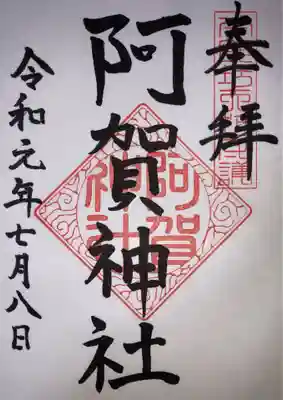 奉拝
阿賀神社
令和元年七月八日
阿賀
神社